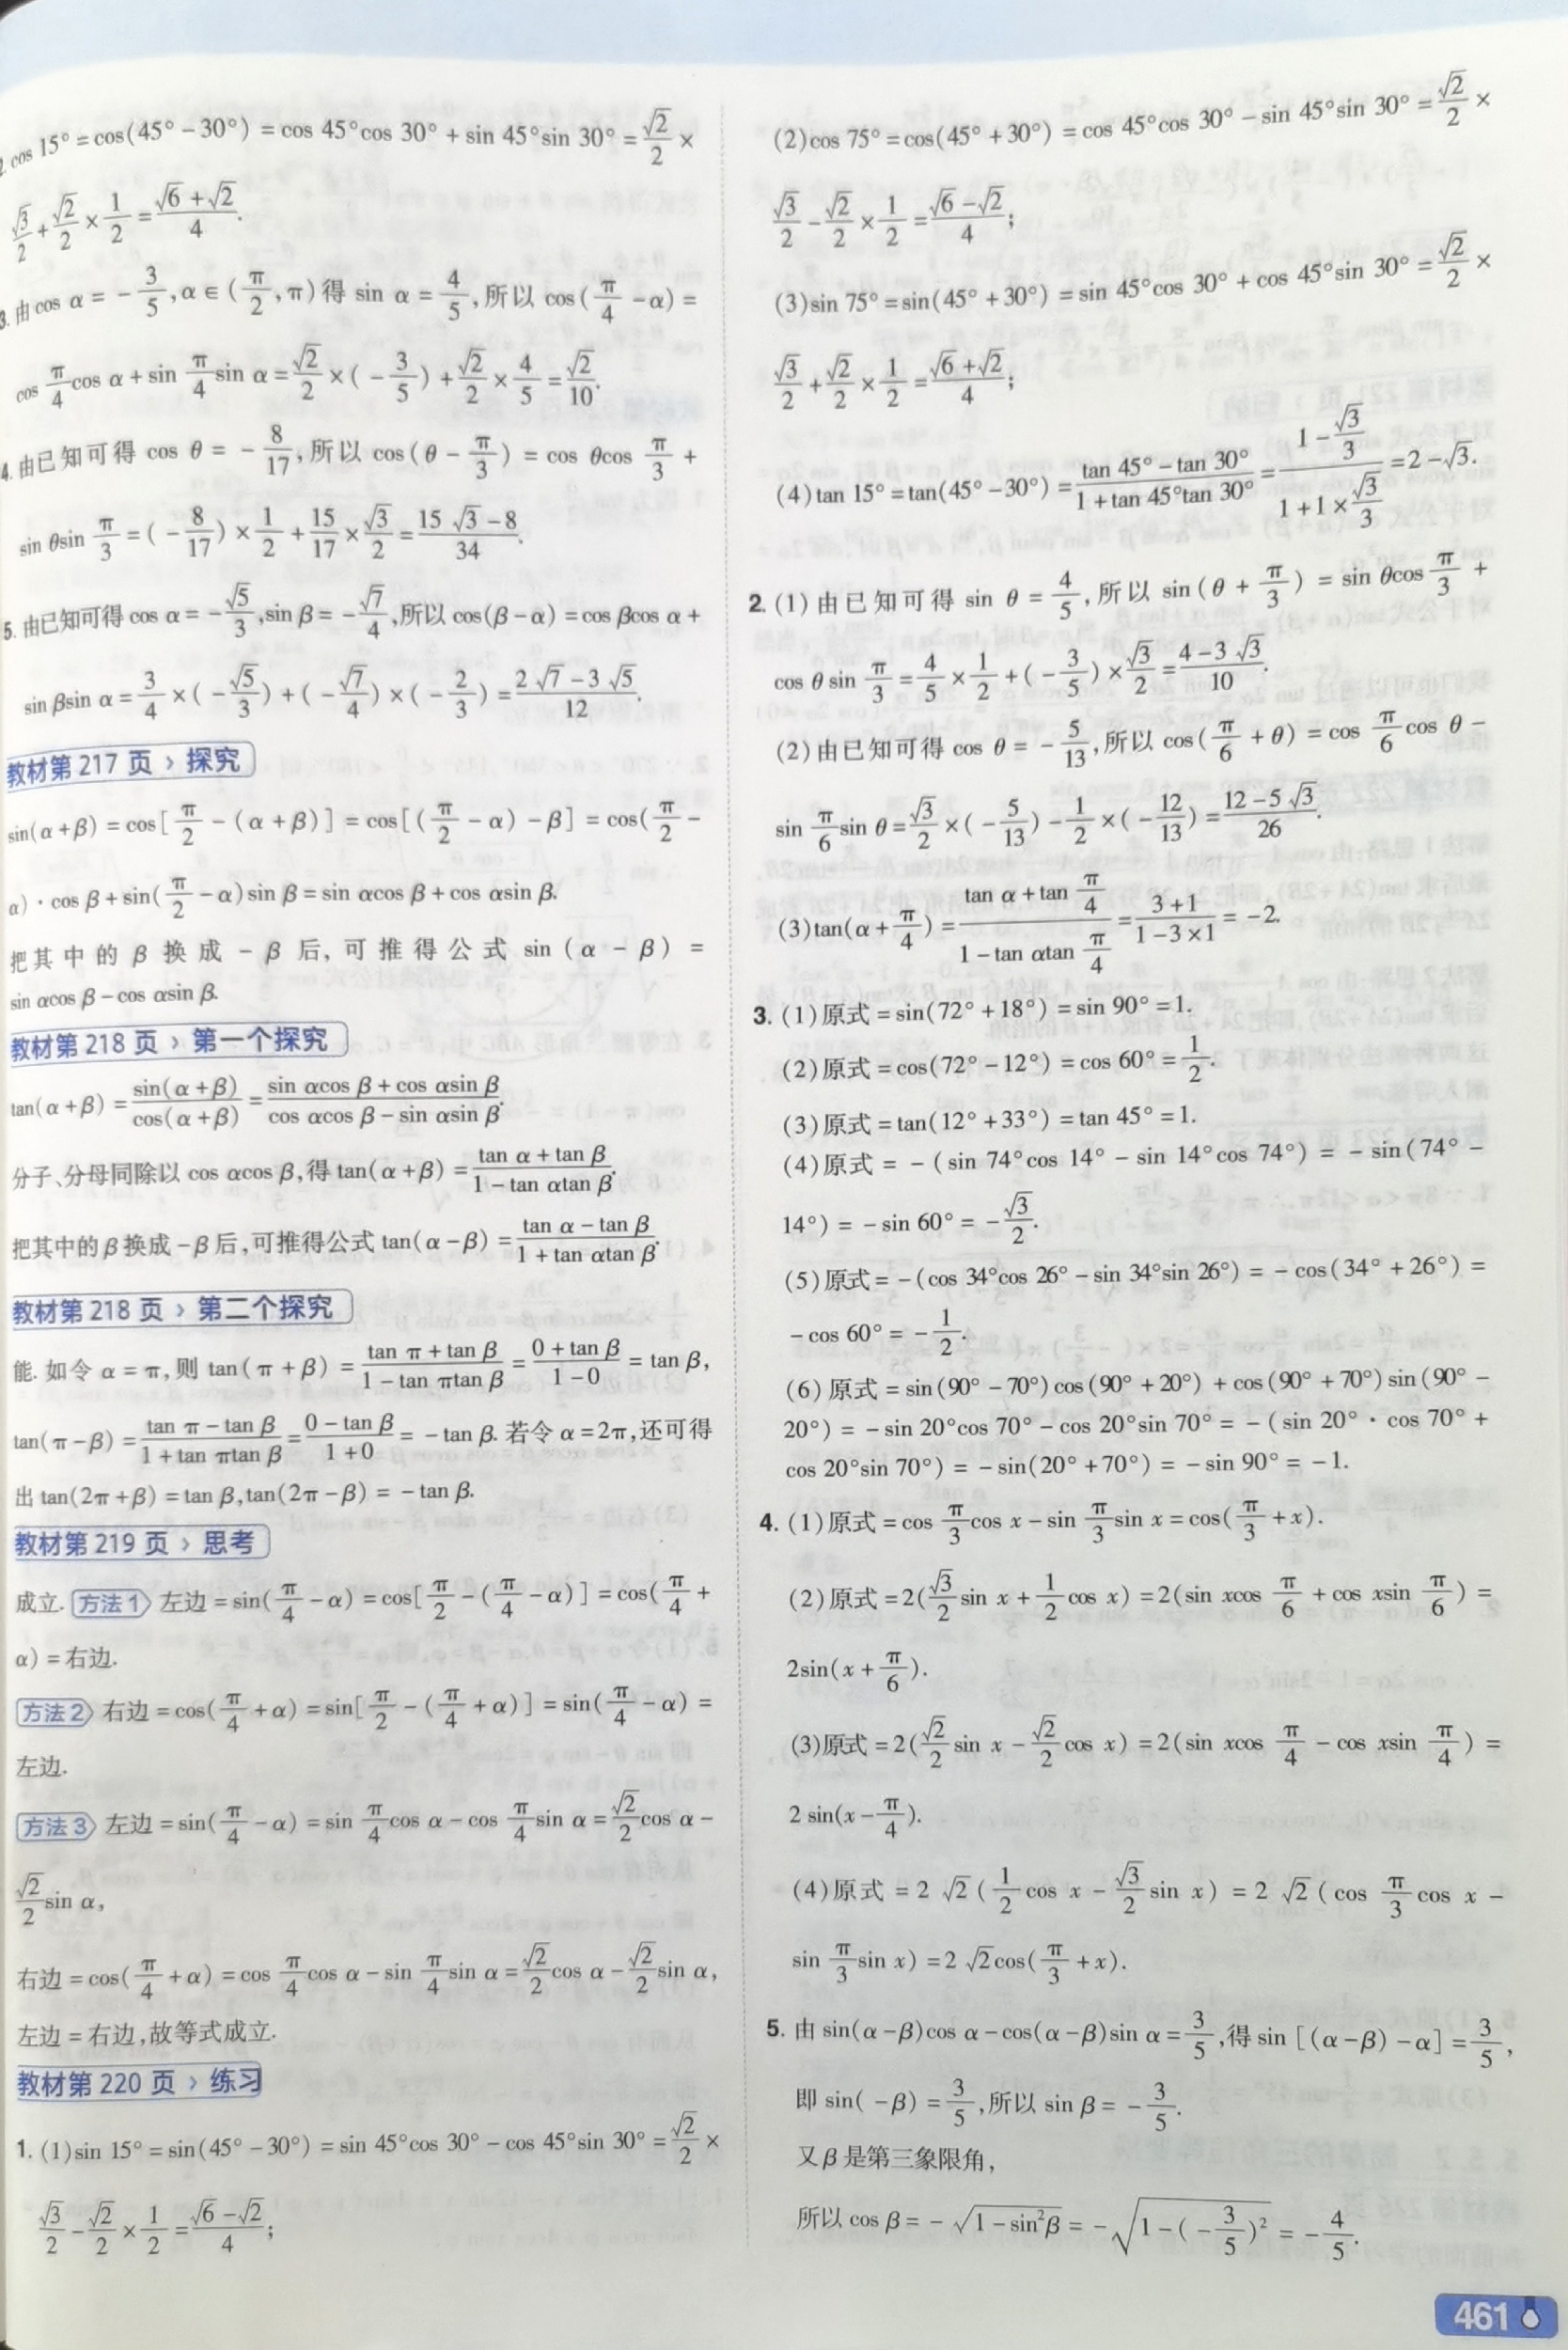 2. cos 15° = cos(45° - 30°) = cos 45°cos 30° + sin 45°sin 30° = √2/2 ×
√3/2 + √2/2 × 1/2 = (√6 + √2)/4.
3. 由 cos α = -3/5, α ∈ (π/2, π) 得 sin α = 4/5, 所以 cos(π/4 - α) =
cos π/4 cos α + sin π/4 sin α = √2/2 × (-3/5) + √2/2 × 4/5 = √2/10.
4. 由已知可得 cos θ = -8/17, 所以 cos(θ - π/3) = cos θcos π/3 +
sin θsin π/3 = (-8/17) × 1/2 + 15/17 × √3/2 = (15√3 - 8)/34.
5. 由已知可得 cos α = -√5/3, sin β = -√7/4, 所以 cos(β - α) = cos βcos α +
sin βsin α = 3/4 × (-√5/3) + (-√7/4) × (-2/3) = (2√7 - 3√5)/12.
教材第 217 页 › 探究
sin(α + β) = cos[π/2 - (α + β)] = cos[(π/2 - α) - β] = cos(π/2 -
α) · cos β + sin(π/2 - α)sin β = sin αcos β + cos αsin β.
把其中的 β 换成 -β 后, 可推得公式 sin (α - β) =
sin αcos β - cos αsin β.
教材第 218 页 › 第一个探究
tan(α + β) = sin(α + β)/cos(α + β) = (sin αcos β + cos αsin β)/(cos αcos β - sin αsin β).
分子、分母同除以 cos αcos β, 得 tan(α + β) = (tan α + tan β)/(1 - tan αtan β).
把其中的 β 换成 -β 后, 可推得公式 tan(α - β) = (tan α - tan β)/(1 + tan αtan β).
教材第 218 页 › 第二个探究
能. 如令 α = π, 则 tan(π + β) = (tan π + tan β)/(1 - tan πtan β) = (0 + tan β)/(1 - 0) = tan β,
tan(π - β) = (tan π - tan β)/(1 + tan πtan β) = (0 - tan β)/(1 + 0) = -tan β. 若令 α = 2π, 还可得
出 tan(2π + β) = tan β, tan(2π - β) = -tan β.
教材第 219 页 › 思考
成立. 方法1 左边 = sin(π/4 - α) = cos[π/2 - (π/4 - α)] = cos(π/4 +
α) = 右边.
方法2 右边 = cos(π/4 + α) = sin[π/2 - (π/4 + α)] = sin(π/4 - α) =
左边.
方法3 左边 = sin(π/4 - α) = sin π/4 cos α - cos π/4 sin α = √2/2 cos α -
√2/2 sin α,
右边 = cos(π/4 + α) = cos π/4 cos α - sin π/4 sin α = √2/2 cos α - √2/2 sin α,
左边 = 右边, 故等式成立.
教材第 220 页 › 练习
1. (1)sin 15° = sin(45° - 30°) = sin 45°cos 30° - cos 45°sin 30° = √2/2 ×
√3/2 - √2/2 × 1/2 = (√6 - √2)/4;
(2)cos 75° = cos(45° + 30°) = cos 45°cos 30° - sin 45°sin 30° = √2/2 ×
√3/2 - √2/2 × 1/2 = (√6 - √2)/4;
(3)sin 75° = sin(45° + 30°) = sin 45°cos 30° + cos 45°sin 30° = √2/2 ×
√3/2 + √2/2 × 1/2 = (√6 + √2)/4;
(4)tan 15° = tan(45° - 30°) = (tan 45° - tan 30°)/(1 + tan 45°tan 30°) = (1 - √3/3)/(1 + 1 × √3/3) = 2 - √3.
2. (1) 由已知可得 sin θ = 4/5, 所以 sin(θ + π/3) = sin θcos π/3 +
cos θ sin π/3 = 4/5 × 1/2 + (-3/5) × √3/2 = (4 - 3√3)/10.
(2) 由已知可得 cos θ = -5/13, 所以 cos(π/6 + θ) = cos π/6 cos θ -
sin π/6 sin θ = √3/2 × (-5/13) - 1/2 × (-12/13) = (12 - 5√3)/26.
(3)tan(α + π/4) = (tan α + tan π/4)/(1 - tan αtan π/4) = (3 + 1)/(1 - 3 × 1) = -2.
3. (1)原式 = sin(72° + 18°) = sin 90° = 1.
(2)原式 = cos(72° - 12°) = cos 60° = 1/2.
(3)原式 = tan(12° + 33°) = tan 45° = 1.
(4)原式 = -(sin 74°cos 14° - sin 14°cos 74°) = -sin(74° -
14°) = -sin 60° = -√3/2.
(5)原式 = -(cos 34°cos 26° - sin 34°sin 26°) = -cos(34° + 26°) =
-cos 60° = -1/2.
(6)原式 = sin(90° - 70°)cos(90° + 20°) + cos(90° + 70°)sin(90° -
20°) = -sin 20°cos 70° - cos 20°sin 70° = -(sin 20° · cos 70° +
cos 20°sin 70°) = -sin(20° + 70°) = -sin 90° = -1.
4. (1)原式 = cos π/3 cos x - sin π/3 sin x = cos(π/3 + x).
(2)原式 = 2(√3/2 sin x + 1/2 cos x) = 2(sin xcos π/6 + cos xsin π/6) =
2sin(x + π/6).
(3)原式 = 2(√2/2 sin x - √2/2 cos x) = 2(sin xcos π/4 - cos xsin π/4) =
2 sin(x - π/4).
(4)原式 = 2√2(1/2 cos x - √3/2 sin x) = 2√2(cos π/3 cos x -
sin π/3 sin x) = 2√2cos(π/3 + x).
5. 由 sin(α - β)cos α - cos(α - β)sin α = 3/5, 得 sin [(α - β) - α] = 3/5,
即 sin(-β) = 3/5, 所以 sin β = -3/5.
又 β 是第三象限角,
所以 cos β = -√(1 - sin²β) = -√(1 - (-3/5)²) = -4/5.
461